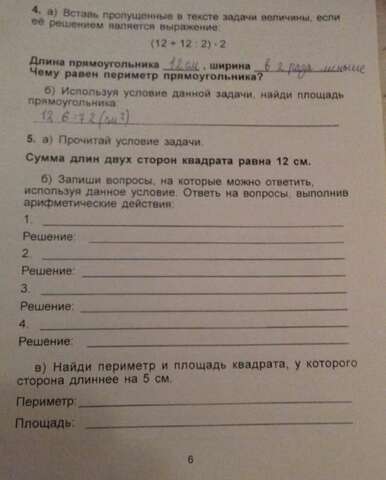 4. а) Вставь пропущенные в тексте задачи величины, если
её решением является выражение:
(12 + 12 : 2) · 2
Длина прямоугольника 12см, ширина в 2 раза меньше
Чему равен периметр прямоугольника?
б) Используя условие данной задачи, найди площадь
прямоугольника.
12 6=72(см²)
5. а) Прочитай условие задачи.
Сумма длин двух сторон квадрата равна 12 см.
б) Запиши вопросы, на которые можно ответить,
используя данное условие. Ответь на вопросы, выполнив
арифметические действия:
1.
Решение:
2.
Решение:
3.
Решение:
4.
Решение:
в) Найди периметр и площадь квадрата, у которого
сторона длиннее на 5 см.
Периметр:
Площадь:
6